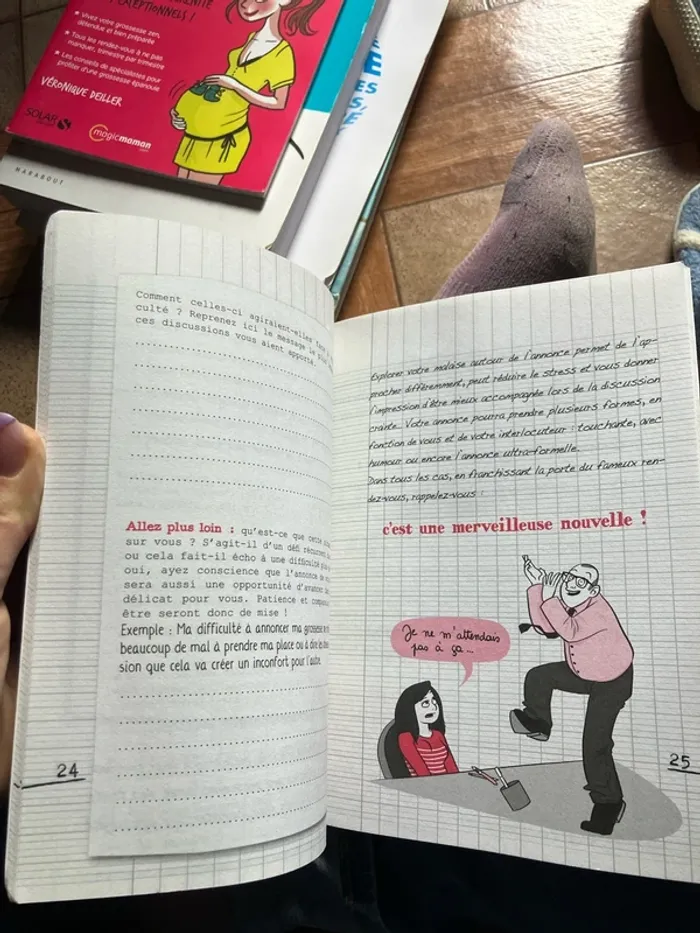 EXCEPTIONNELS !
★ Vivez votre grossesse zen,
détendue et bien préparée
★ Tous les rendez-vous à ne pas
manquer, trimestre par trimestre
★ Les conseils de spécialistes pour
profiter d'une grossesse épanouie
VÉRONIQUE DEILLER
SOLAR
magicmaman
.com
MARABOUT
Comment celles-ci agiraient-elles
culté ? Reprenez ici le message le
ces discussions vous aient apporté.
Allez plus loin : qu'est-ce que cette
sur vous ? S'agit-il d'un défi récurrent
ou cela fait-il écho à une difficulté
oui, ayez conscience que l'annonce
sera aussi une opportunité d'avancer
délicat pour vous. Patience et
être seront donc de mise !
Exemple : Ma difficulté à annoncer ma grossesse
beaucoup de mal à prendre ma place ou à dire
sion que cela va créer un inconfort pour l'autre.
24
Explorer votre malaise autour de l'annonce permet de l'ap-
procher différemment, peut réduire le stress et vous donner
l'impression d'être mieux accompagnée lors de la discussion
crainte. Votre annonce pourra prendre plusieurs formes, en
fonction de vous et de votre interlocuteur : touchante, avec
humour ou encore l'annonce ultra-formelle.
Dans tous les cas, en franchissant la porte du fameux ren-
dez-vous, rappelez-vous :
c'est une merveilleuse nouvelle !
Je ne m'attendais
pas à ça...
25